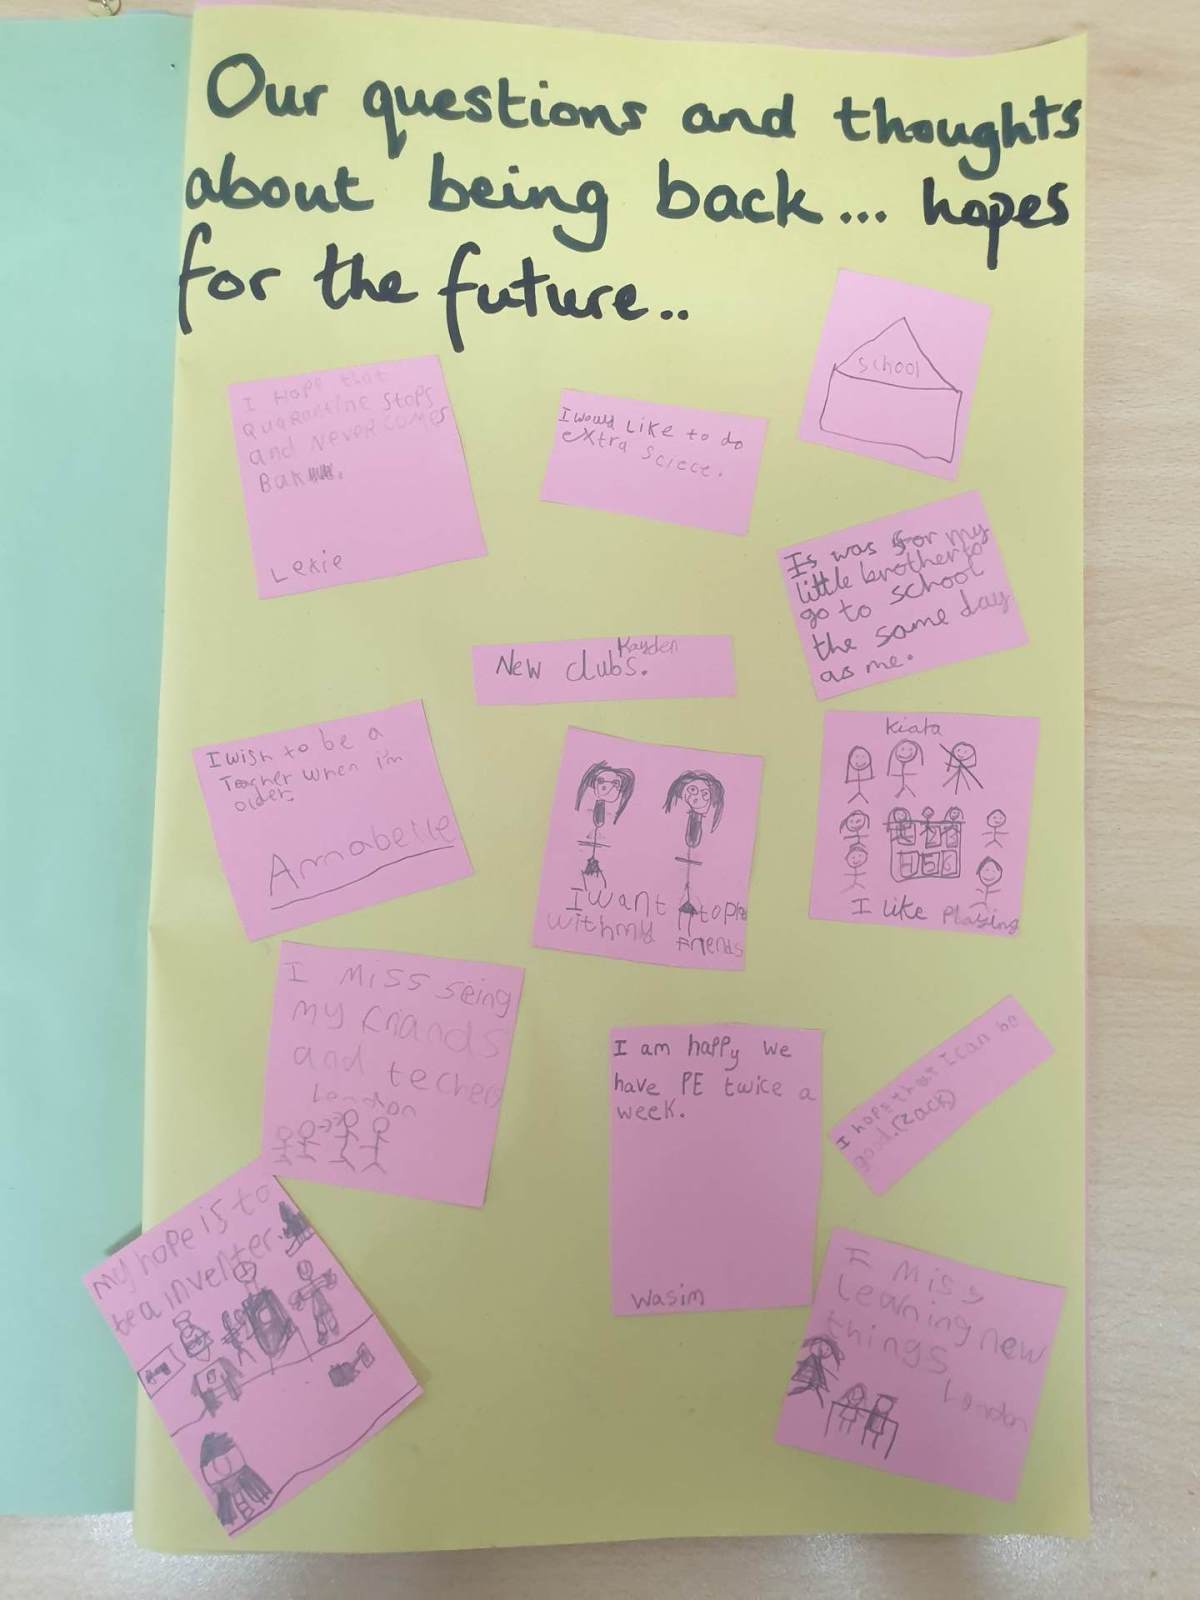 Our questions and thoughts
about being back... hopes
for the future..
School
I Hope that
quarantine stops
and never comes
Bak.
Lexie
I would Like to do
extra sciece.
Is was for my
little brother to
go to school
the same day
as me.
Kayden
New clubs.
I wish to be a
Teacher when i'm
older.
Annabelle
I want to pla
with my friends
Kiata
1 2 3
4 5 6
I like playing
I miss seing
my friands
and techers
London
I am happy we
have PE twice a
week.
Wasim
I hope that I can be
good. (Zack)
my hope is to
be a inventer.
I miss
Learning new
things
London